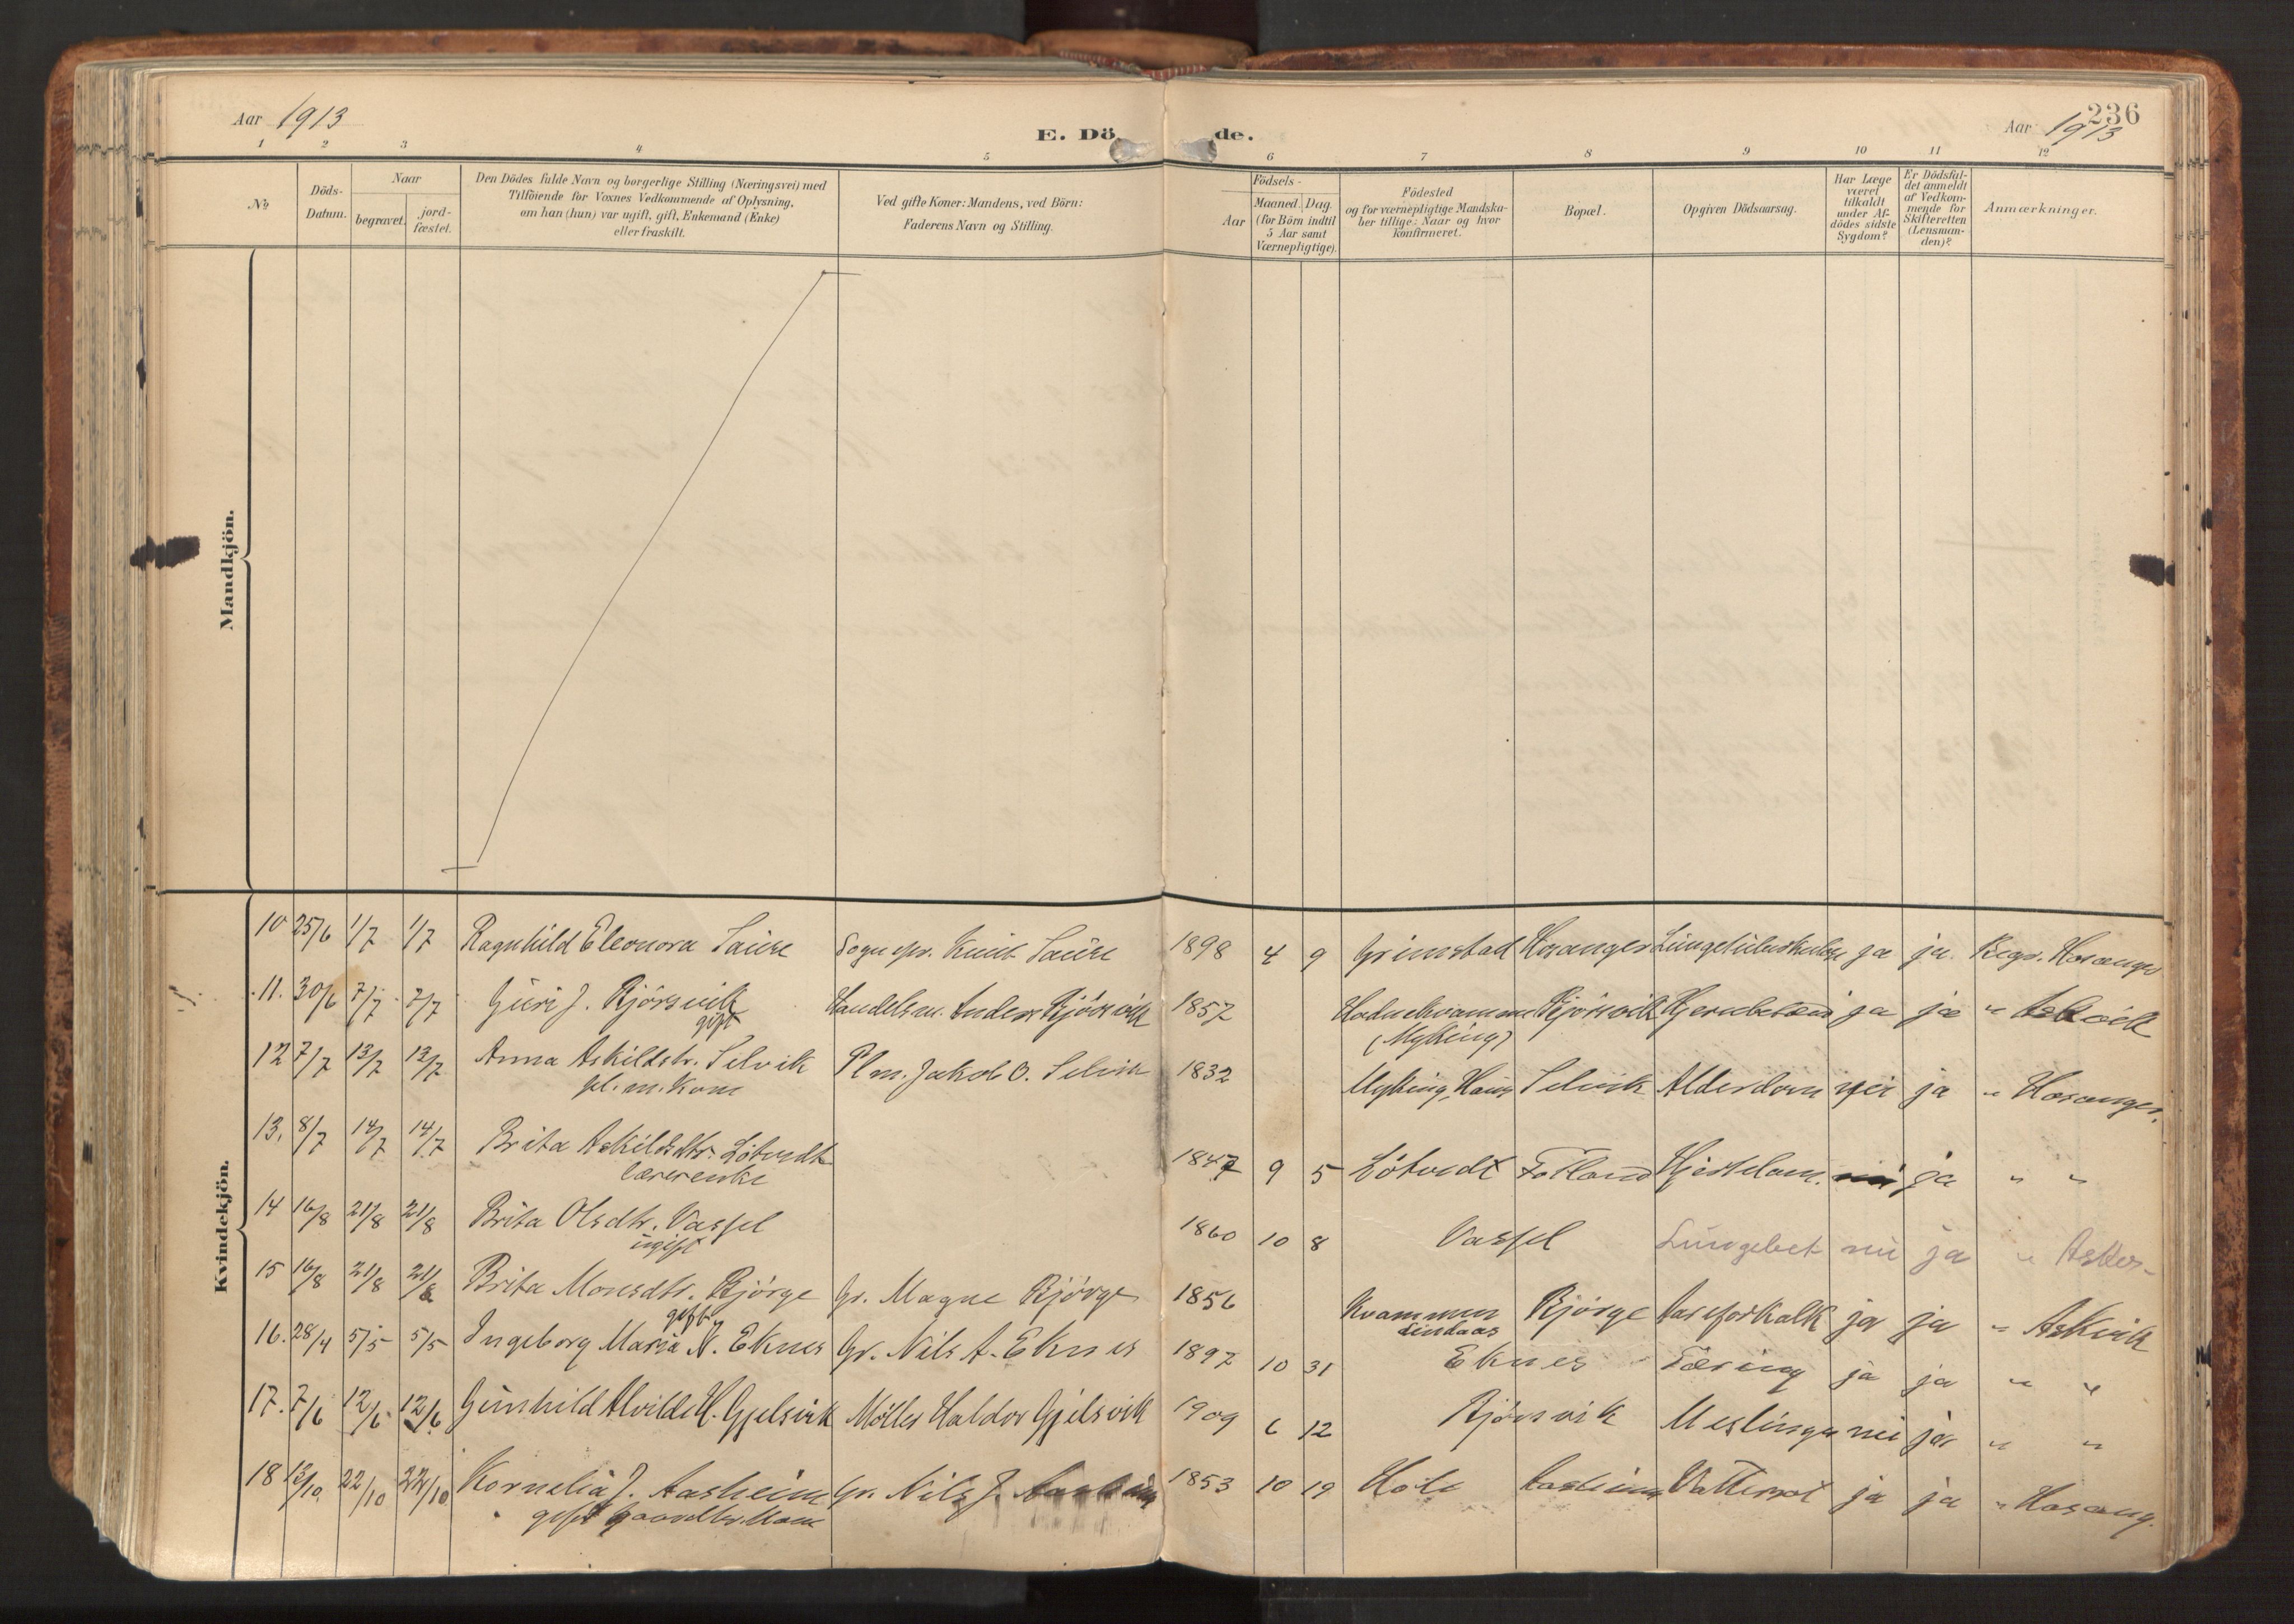 236
Aar 1913
E. Dö de.
Aar 1913
1 2 3 4 5 6 7 8 9 10 11 12
No
Döds-Datum.
Naar
begravet.
jord-fæstet.
Den Dödes fulde Navn og borgerlige Stilling (Næringsvei) med
Tilföiende for Voxnes Vedkommende af Oplysning,
om han (hun) var ugift, gift, Enkemand (Enke)
eller fraskilt.
Ved gifte Koner: Mandens, ved Börn:
Faderens Navn og Stilling.
Födsels-
Aar
Maaned. Dag.
(for Börn indtil
5 Aar samt
Værnepligtige).
Födested
og for værnepligtige Mandska-
ber tillige: Naar og hvor
konfirmeret.
Bopæl.
Opgiven Dödsaarsag.
Har Læge
været
tilkaldt
under Af-
dödes sidste
Sygdom?
Er Dödsfal-
det anmeldt
af Vedkom-
mende for
Skifteretten
(Lensman-
den)?
Anmærkninger.
Mandkjön.
Kvindekjön.
10 25/6 1/7 1/7 Ragnhild Eleonora Saure Sognepr. Knut Saure 1898 4 9 Grimstad Hosanger Lungetuberkulose ja ja Begr. Hosanger
11. 30/6 7/7 7/7 Guri J. Bjørsvik Handelsm. Anders Bjørsvik 1857 Bjørsvik ja ja " Askvik
gift
(Myking)
12 7/7 13/7 13/7 Anna Askildstr. Selvik Pl m. Jakob O. Selvik 1832 Myking, Selvik Alderdom nei ja " Hosanger.
pl. m. Kone
13. 8/7 14/7 14/7 Brita Askildsdtr.Løtvedt 1847 9 5 Løtvedt Fotland ja " "
lærerenke
14 16/8 21/8 21/8 Brita Olsdtr. Vassel 1860 10 8 Vassel Lungebet nei ja "
ugift
15 16/8 21/8 21/8 Brita Monsdtr. Bjørge Gr. Magne Bjørge 1856 Kvammen Bjørge Aareforkalk ja ja " Askvik
gift
Lindaas
16. 28/4 5/5 5/5 Ingeborg Maria N. Eknes Gr. Nils A. Eknes 1897 10 31 Eknes Tæring ja ja " "
17. 7/6 12/6 12/6 Gunhild Alvilde H. Gjelsvik Møller Haldor Gjelsvik 1909 6 12 Bjørsvik Meslinger nei ja " "
18 13/10 22/10 22/10 Kornelia J. Aasheim Gr. Nils J. Aasheim 1853 10 19 Aasheim Vattersot ja ja " Hosang.
gift gaardbr. kone